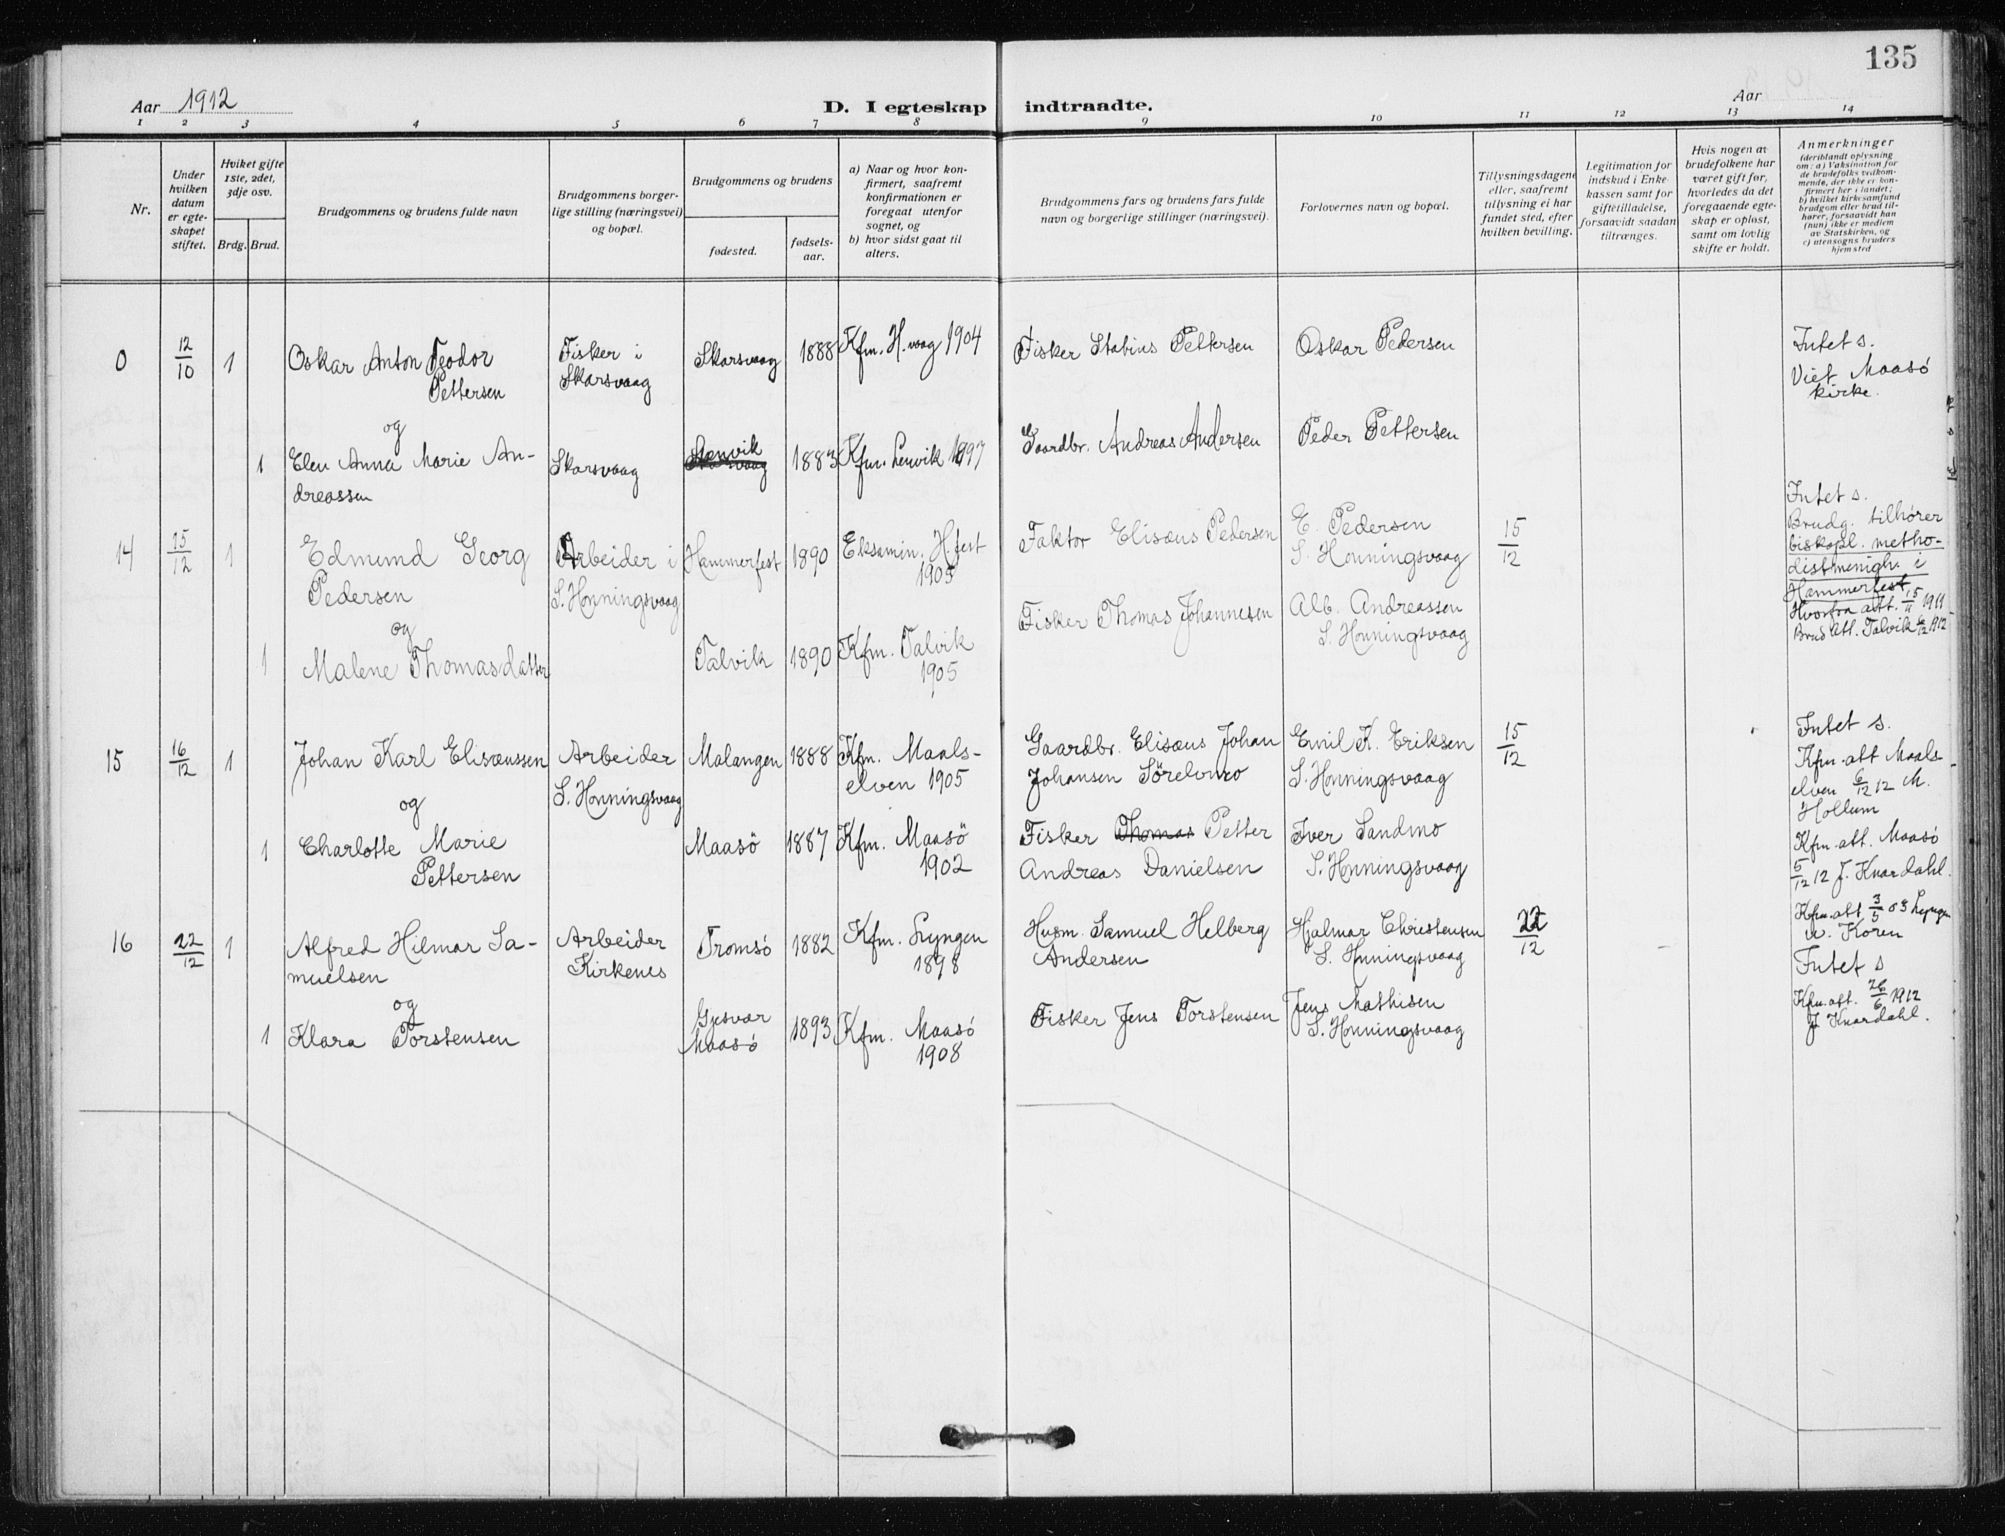 135
Aar 1912
D. I egteskap indtraadte.
Aar
1 2 3 4 5 6 7 8 9 10 11 12 13 14
Nr.
Under hvilken datum er egteskapet stiftet.
Hviket gifte 1ste, 2det, 3dje osv.
Brdg. Brud.
Brudgommens og brudens fulde navn
Brudgommens borgerlige stilling (næringsvei) og bopæl.
Brudgommens og brudens
fødested.
fødselsaar.
a) Naar og hvor konfirmert, saafremt konfirmationen er foregaat utenfor sognet, og
b) hvor sidst gaat til alters.
Brudgommens fars og brudens fars fulde navn og borgerlige stillinger (næringsvei).
Forlovernes navn og bopæl.
Tillysningsdagene eller, saafremt tillysning ei har fundet sted, efter hvilken bevilling.
Legitimation for indskud i Enkekassen samt for giftetilladelse, forsaavidt saadan tiltrænges.
Hvis nogen av brudefolkene har været gift før, hvorledes da det foregaaende egteskap er opløst, samt om lovlig skifte er holdt.
Anmerkninger
(deriblandt oplysning om: a) Vaksination for de brudefolks vedkommende, der ikke er konfirmert her i landet;
b) hvilket kirkesamfund brudgom eller brud tilhører, forsaavidt han (hun) ikke er medlem av Statskirken, og
c) utensogns bruders hjemsted
0 12/10 1 Oskar Anton Teodor Pettersen
Fisker i Skarsvaag
Skarsvaag 1888 Kfm. H.vaag 1904
Fisker Pettersen
Oskar Pedersen
Intet s.
Viet Maasö kirke.
og
1 Elen Anna Marie Andreassen
Skarsvaag
Lenvik 1883 Kfm. Lenvik 1897
Gaardbr. Andreas Andersen
Peder Pettersen
14 15/12 1 Edmund Georg Pedersen
Arbeider i S. Honningsvaag
Hammerfest 1890 Eksamin. H.fest 1905
Faktor Elisæus Pedersen
E. Pedersen S. Honningsvaag
15/12
Intet s.
Brudg. tilhører biskopl. methodistmenigh. i Hammerfest
Hvorfra att. 15/11 1911
Brud att. Talvik 6/12 1912
og
1 Malene Thomasdatter
Talvik 1890 Kfm. Talvik 1905
Fisker Thomas Johannesen
Alb. Andreassen S. Honningsvaag
15 16/12 1 Johan Karl Elisæussen
Arbeider S. Honningsvaag
Malangen 1888 Kfm. Maalselven 1905
Gaardbr. Elisæus Johan Johansen
Emil K. Eriksen S. Honningsvaag
15/12
Intet s.
Kfm. att Maalselven 6/12 12 M. Hollum
og
1 Charlotte Marie Pettersen
Maasö 1887 Kfm. Maasö 1902
Fisker Thomas Petter Andreas Danielsen
Iver Sandmo S. Honningsvaag
Kfm. att. Maasö 5/12 12 J. Knardahl.
16 22/12 1 Alfred Hilmar Samuelsen
Arbeider Kirkenes
Tromsö 1882 Kfm. Lyngen 1898
Husm. Samuel Helberg Andersen
Hjalmar Christensen S. Honningsvaag
22/12
Kfm. att 3/5 03 Lyngen
Koren
Intet s
og
1 Klara Torstensen
Gjesvær Maasö 1893 Kfm. Maasö 1908
Fisker Jens Torstensen
Jens Mathisen S. Honningsvaag
Kfm. att. 26/6 1912 J Knardahl.